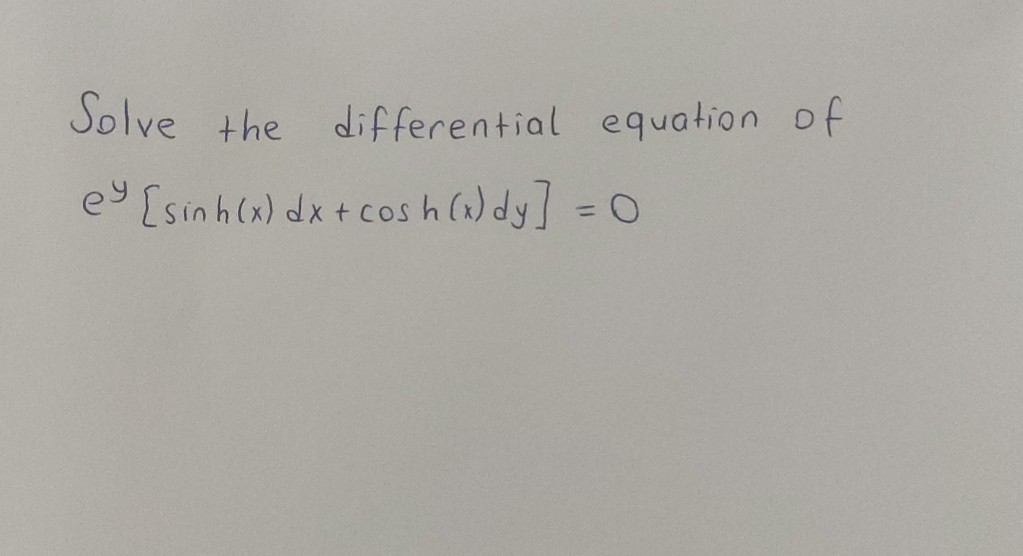 Solve the differential equation of
e^y [sinh(x) dx + cosh(x) dy] = 0